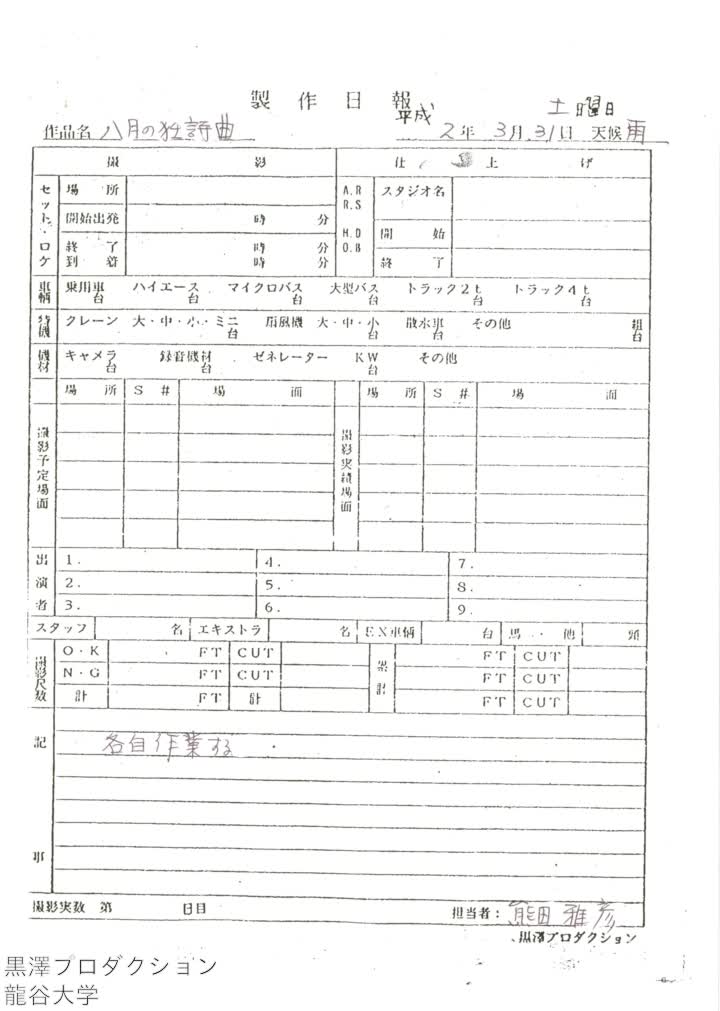 製作日報
平成
土曜日
作品名 八月の狂詩曲 2年 3月 31日 天候 雨
撮影 仕上げ
セット・ロケ 場所 A.R R.S スタジオ名
開始出発 時 分 H.D O.B 開始
終了 時 分 終了
到着 時 分
車輌 乗用車 台 ハイエース 台 マイクロバス 台 大型バス 台 トラック2t 台 トラック4t 台
特機 クレーン 大・中・小・ミニ 台 扇風機 大・中・小 台 散水車 台 その他 組 台
機材 キャメラ 台 録音機材 台 ゼネレーター KW 台 その他
場所 S # 場面 場所 S # 場面
撮影予定場面 撮影実績場面
出演者 1. 4. 7.
2. 5. 8.
3. 6. 9.
スタッフ 名 エキストラ 名 EX車輌 台 馬・他 頭
撮影尺数 O・K FT CUT 累計 FT CUT
N・G FT CUT FT CUT
計 FT 計 FT CUT
記事
各自作業する
撮影実数 第 日目 担当者: 熊田雅彦
黒澤プロダクション
黒澤プロダクション
龍谷大学